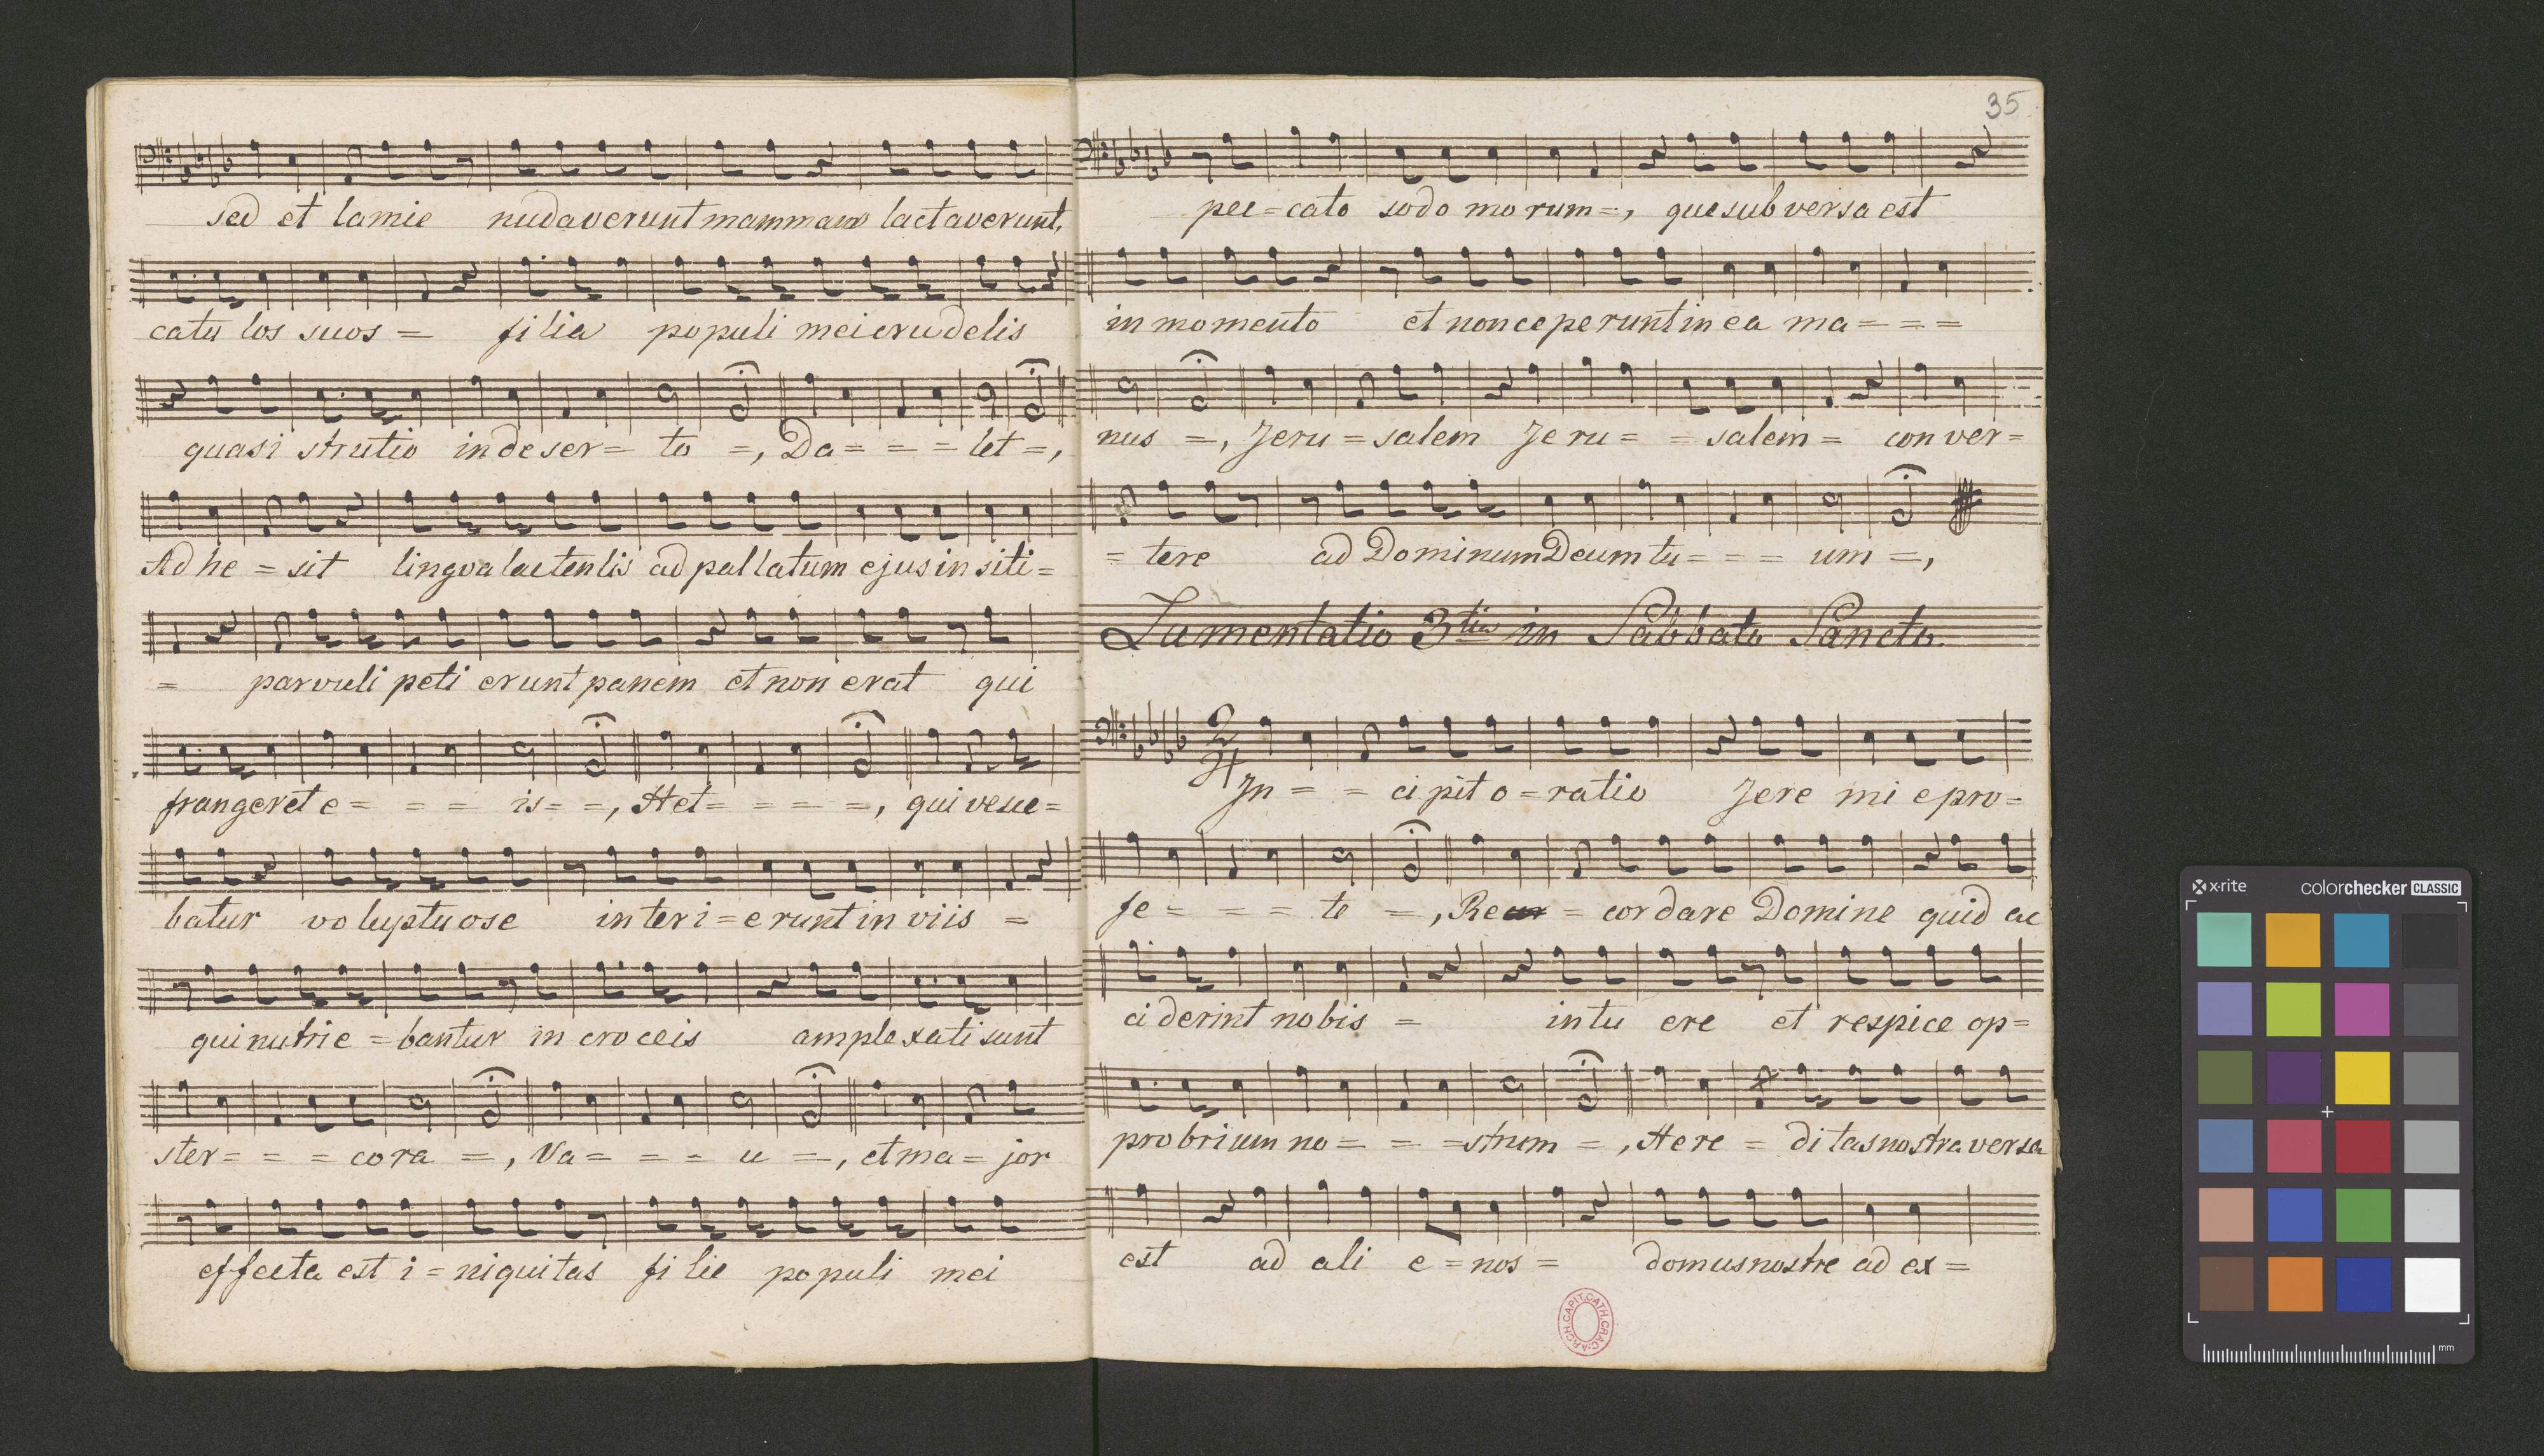 sed et lamie nudaverunt mammam lactaverunt,
catu los suos = fi lia populi mei crudelis
quasi strutio in de ser= to =, Da= = = let =,
Ad he = sit lingva lactentis ad pallatum ejus in siti=
= parvuli peti erunt panem et non erat qui
frangeret e= = = is= =, Het= = = =, qui vesce=
batur vo luptuose interi=erunt in viis =
qui nutrie =bantur in croceis amplexati sunt
ster= = = co ra =, Va= = = u =, et ma= jor
effecta est i = niquitas fi lie populi mei
35
pec=cato sodo mo rum=, que sub versa est
in momento et non ceperunt in ea ma= = =
nus =, Jeru=salem Je ru= = salem= con ver=
= tere ad Dominum Deum tu= = = um =,
Lamentatio 3tia in Sabbato Sancto.
2/4
Jn = = ci pit o=ratio Jere mi e pro=
fe = = = te =, Re = cordare Domine quid ac
ci derint nobis = intu ere et respice op=
probrium no= = =strum =, Here = di tas nostra versa
est ad ali e =nos = domus nostre ad ex=
ARCH.CAPIT.CATH.CRAC.
x·rite colorchecker CLASSIC
mm